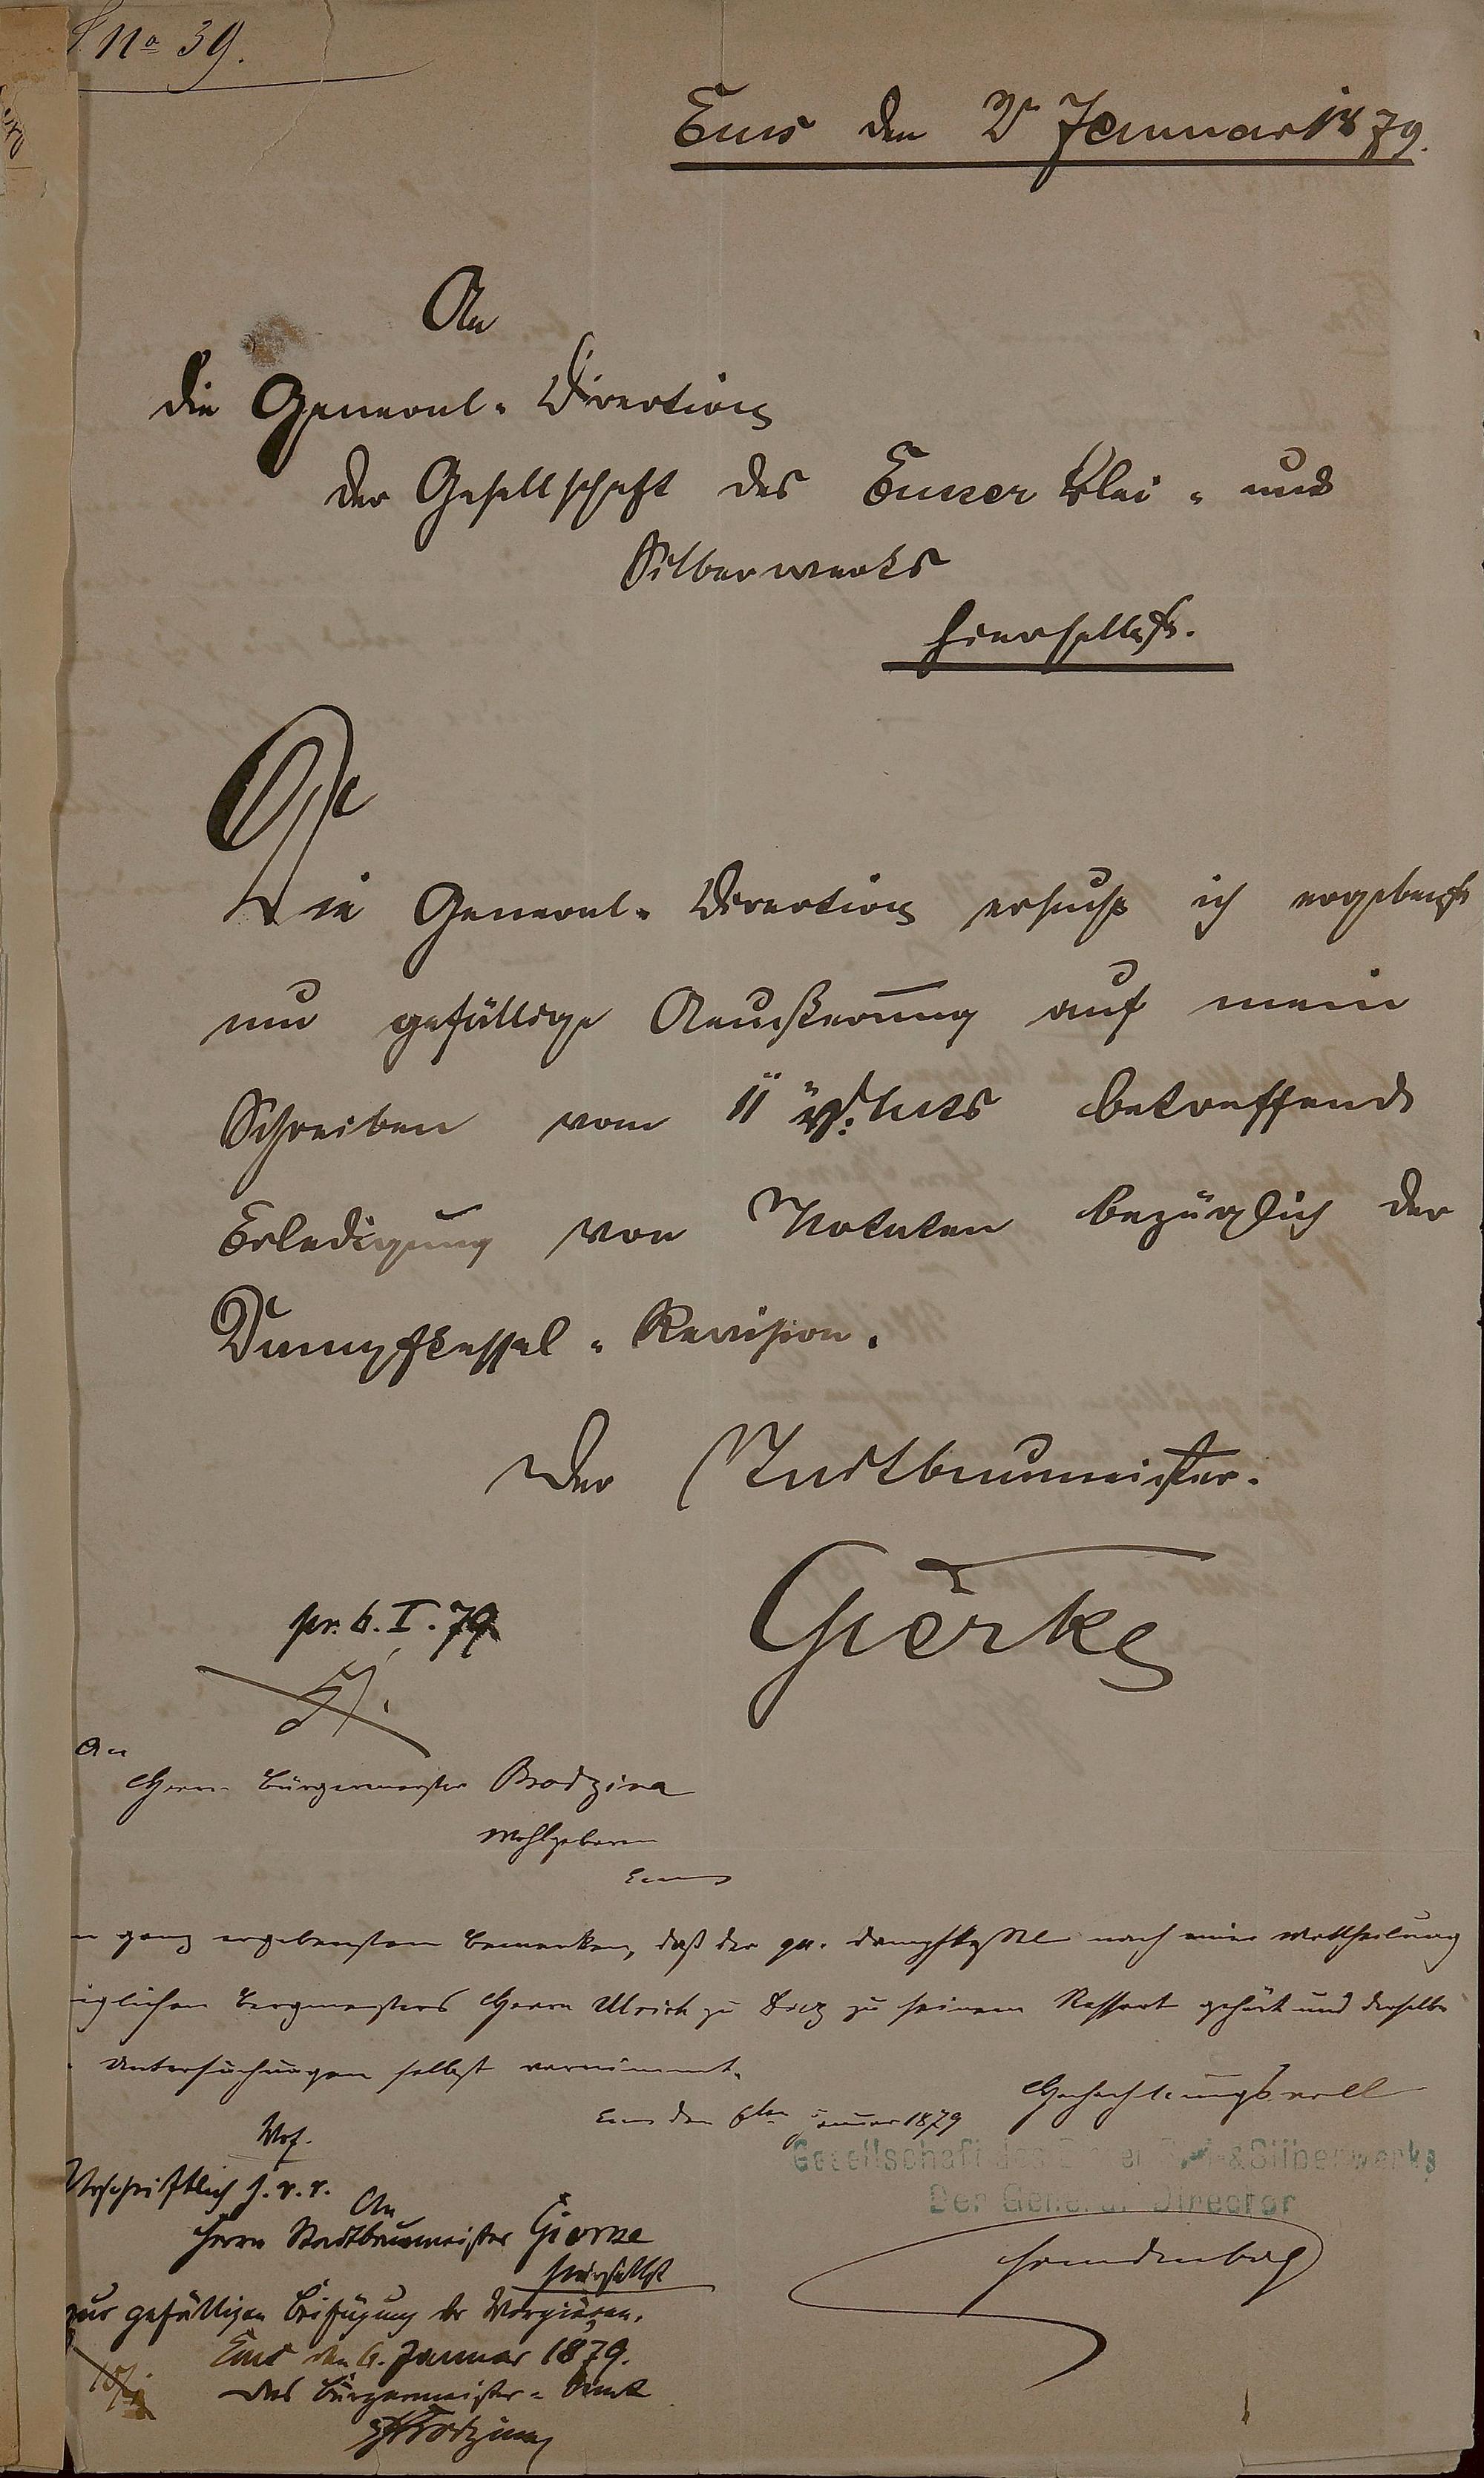 No 39.
Ems den 2n Januar 1879.
An
die General-Direction
der Gesellschaft des Emser Blei- und
Silberwerks
hierselbst.
Die General-Direction ersuche ich ergebenst
um gefällige Aeußerung auf mein
Schreiben vom 11 v: Mts betreffend
Erledigung von Notaten bezüglich der
Dampfkessel-Revision.
Der Stadtbaumeister.
Gierke
pr. 6. I. 79
An
Herrn Bürgermeister Brodzina
Wohlgeboren
Ems
ganz ergebensten Bemerken, daß der qu. Dampfkessel nach einer Mittheilung
iglichen Bergmeisters Herrn Ulrich zu Diez zu seinem Ressort gehört und derselbe
Untersuchungen selbst vornimmt.
Ems den 6ten Januar 1879
Hochachtungsvoll
Gesellschaft des Emser Blei- & Silberwerks
Der General Director
Freudenberg
Urschriftlich
An
Herrn Stadtbaumeister Gierke
hierselbst
zur gefälligen Beifügung der Vorgänge.
Ems den 6. Januar 1879.
Das Bürgermeister-Amt
Brodzina